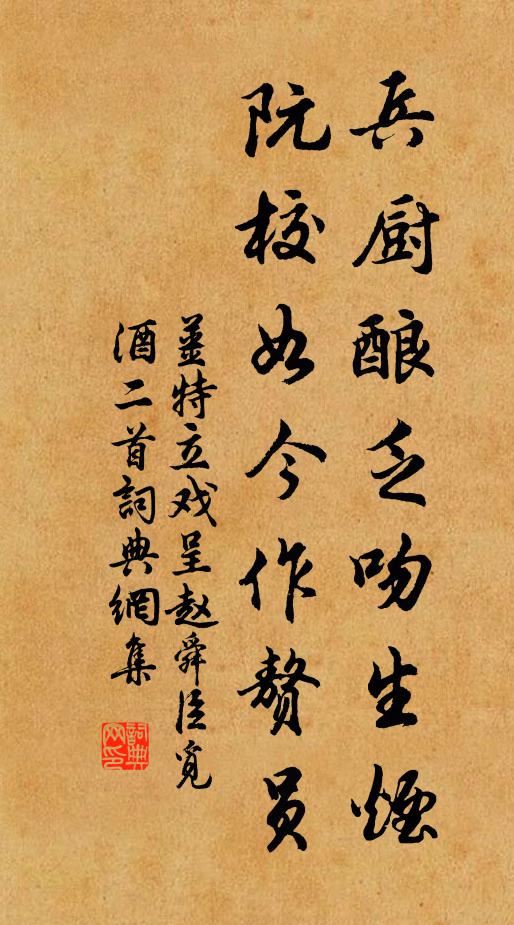 兵厨酿乏吻生烟
阮校如今作赘员
姜特立戏呈赵舜臣觅
酒二首詞典網集
詞典網印